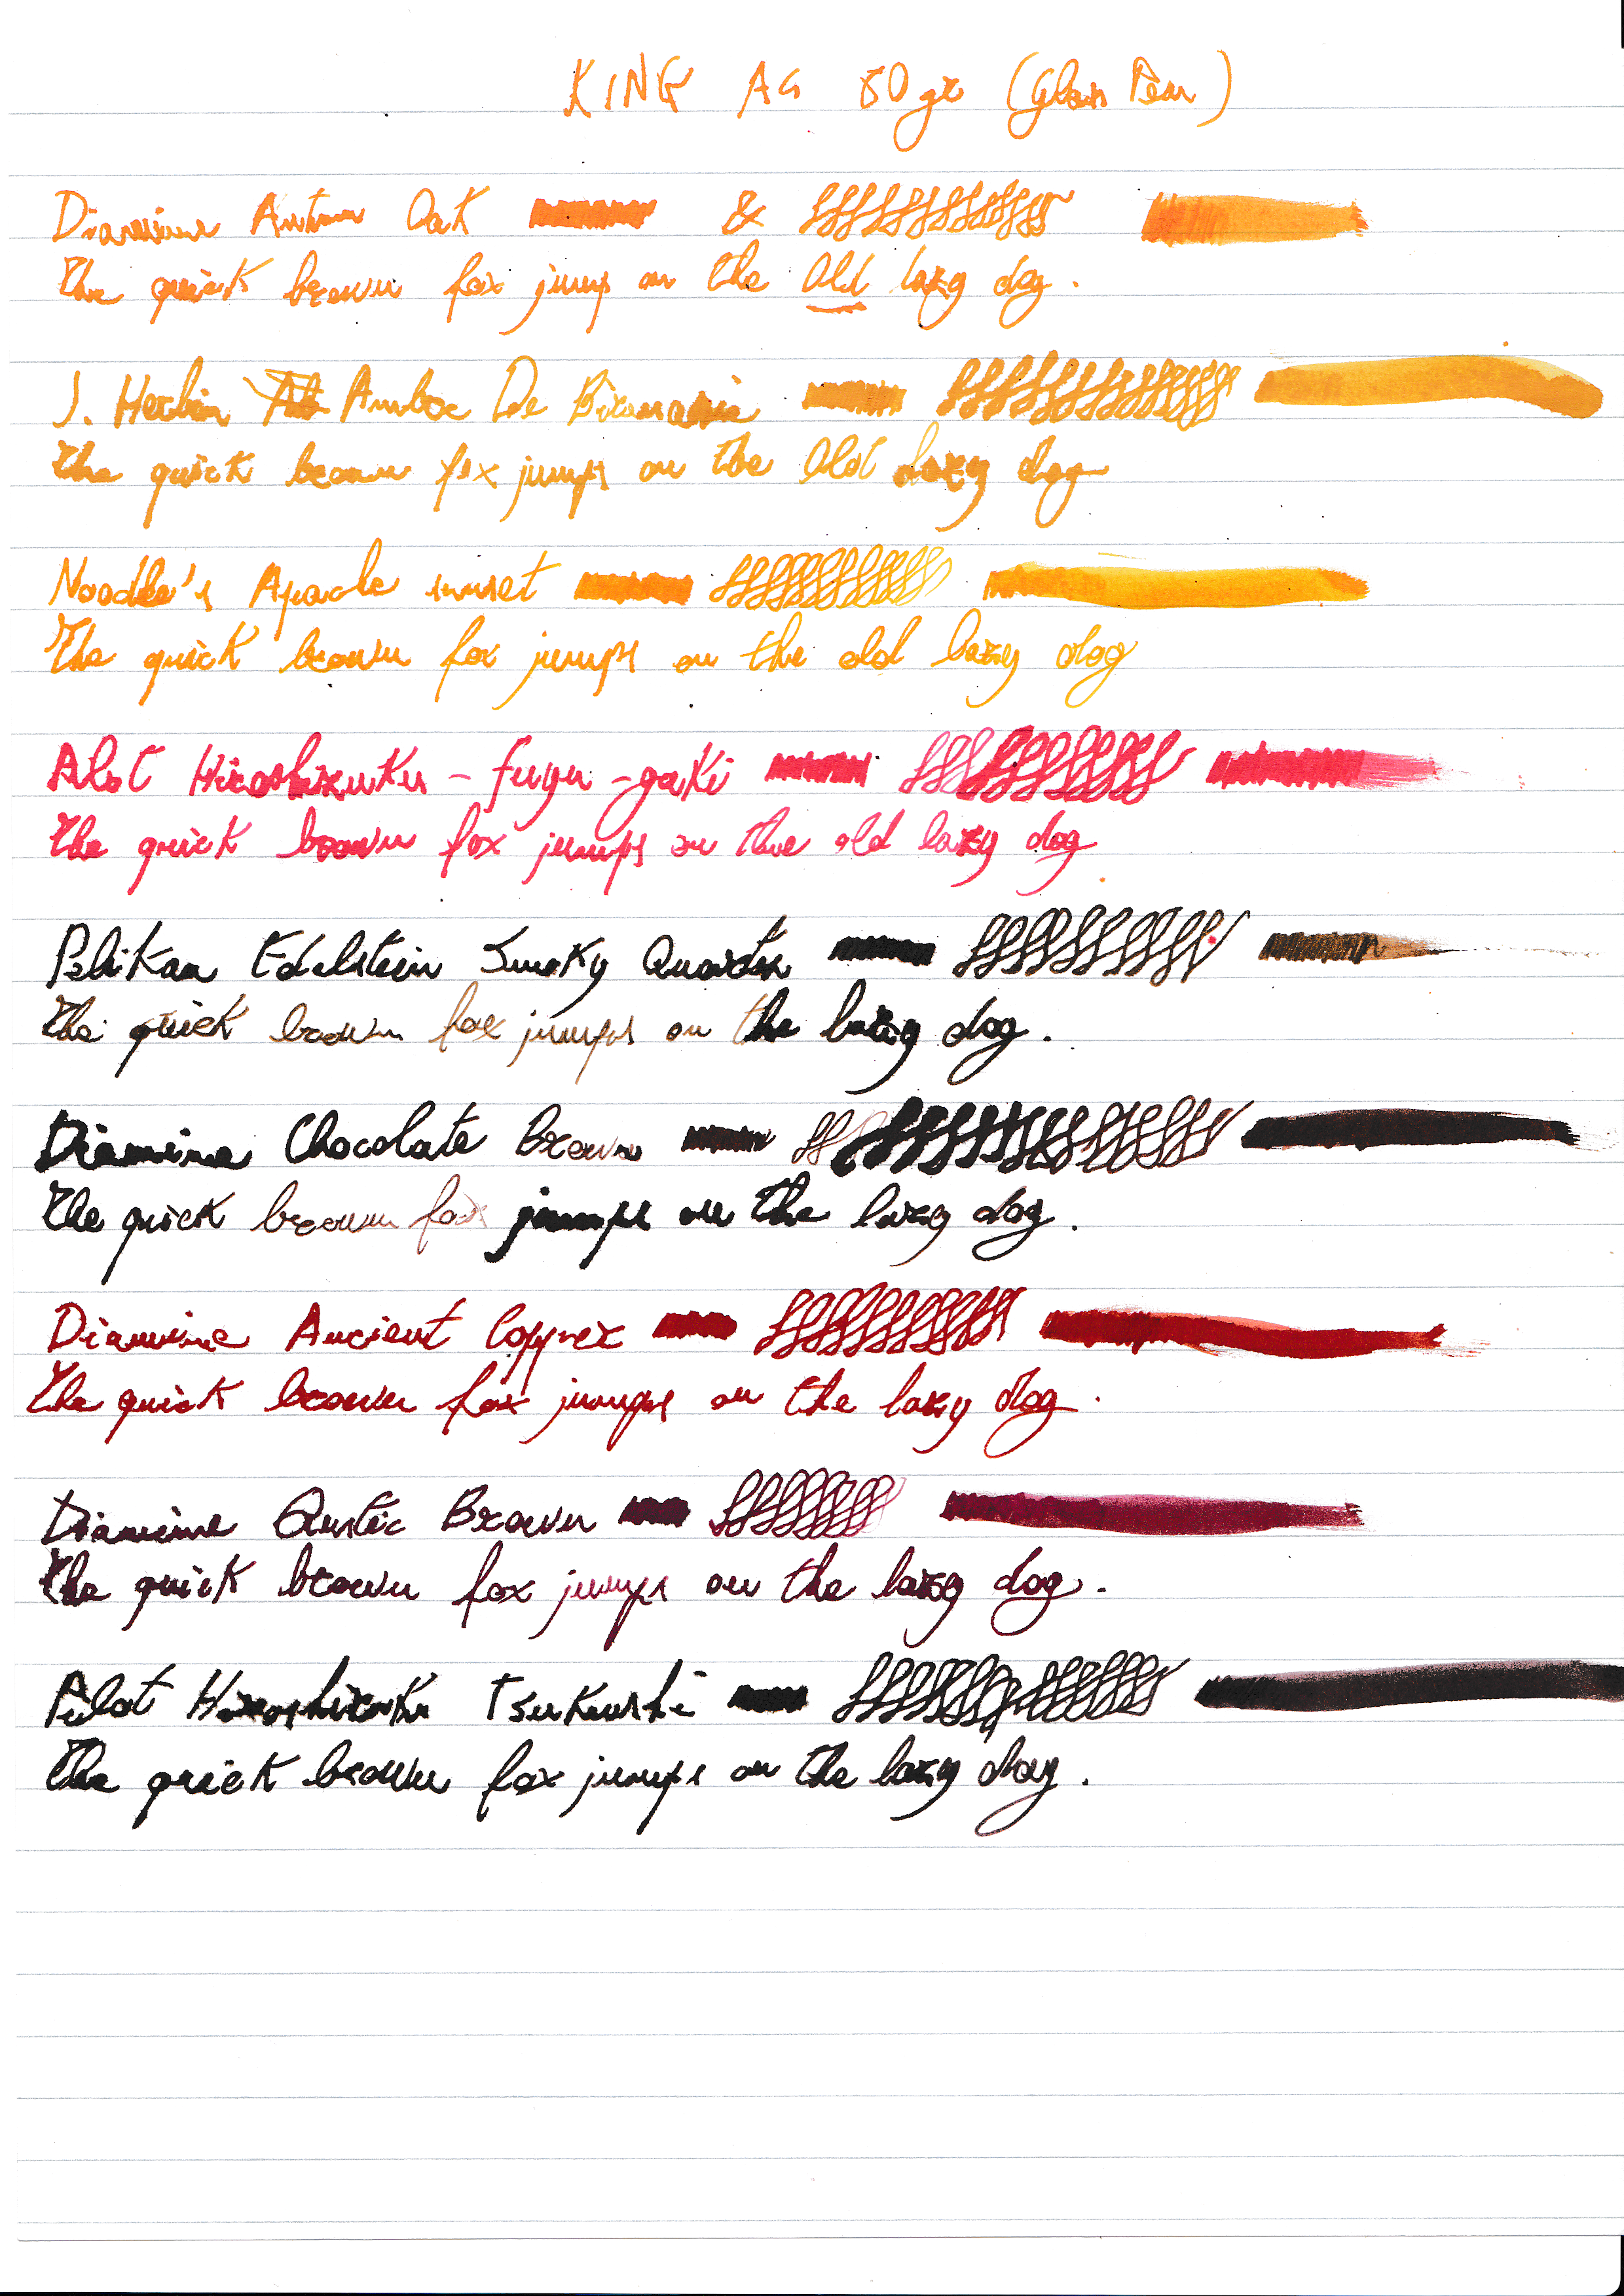 KING A4 80gr (glass Pen)
Diamine Autum Oak &
The quick brown fox jump on the Old lazy dog.
J. Herbin Ambre De Birmanie
The quick brown fox jumps on the Old lazy dog
Noodle's Apache sunset
The quick brown fox jumps on the old lazy dog
Pilot Hiroshizuku - fuyu - gaki
The quick brown fox jumps on the old lazy dog
Pelikan Edelstein Smoky Quartz
The quick brown fox jumps on the lazy dog.
Diamine Chocolate Brown
The quick brown fox jumps on the lazy dog.
Diamine Ancient Copper
The quick brown fox jumps on the lazy dog.
Diamine Rustic Brown
The quick brown fox jumps on the lazy dog.
Pilot Hiroshizuku Tsukushi
The quick brown fox jumps on the lazy dog.